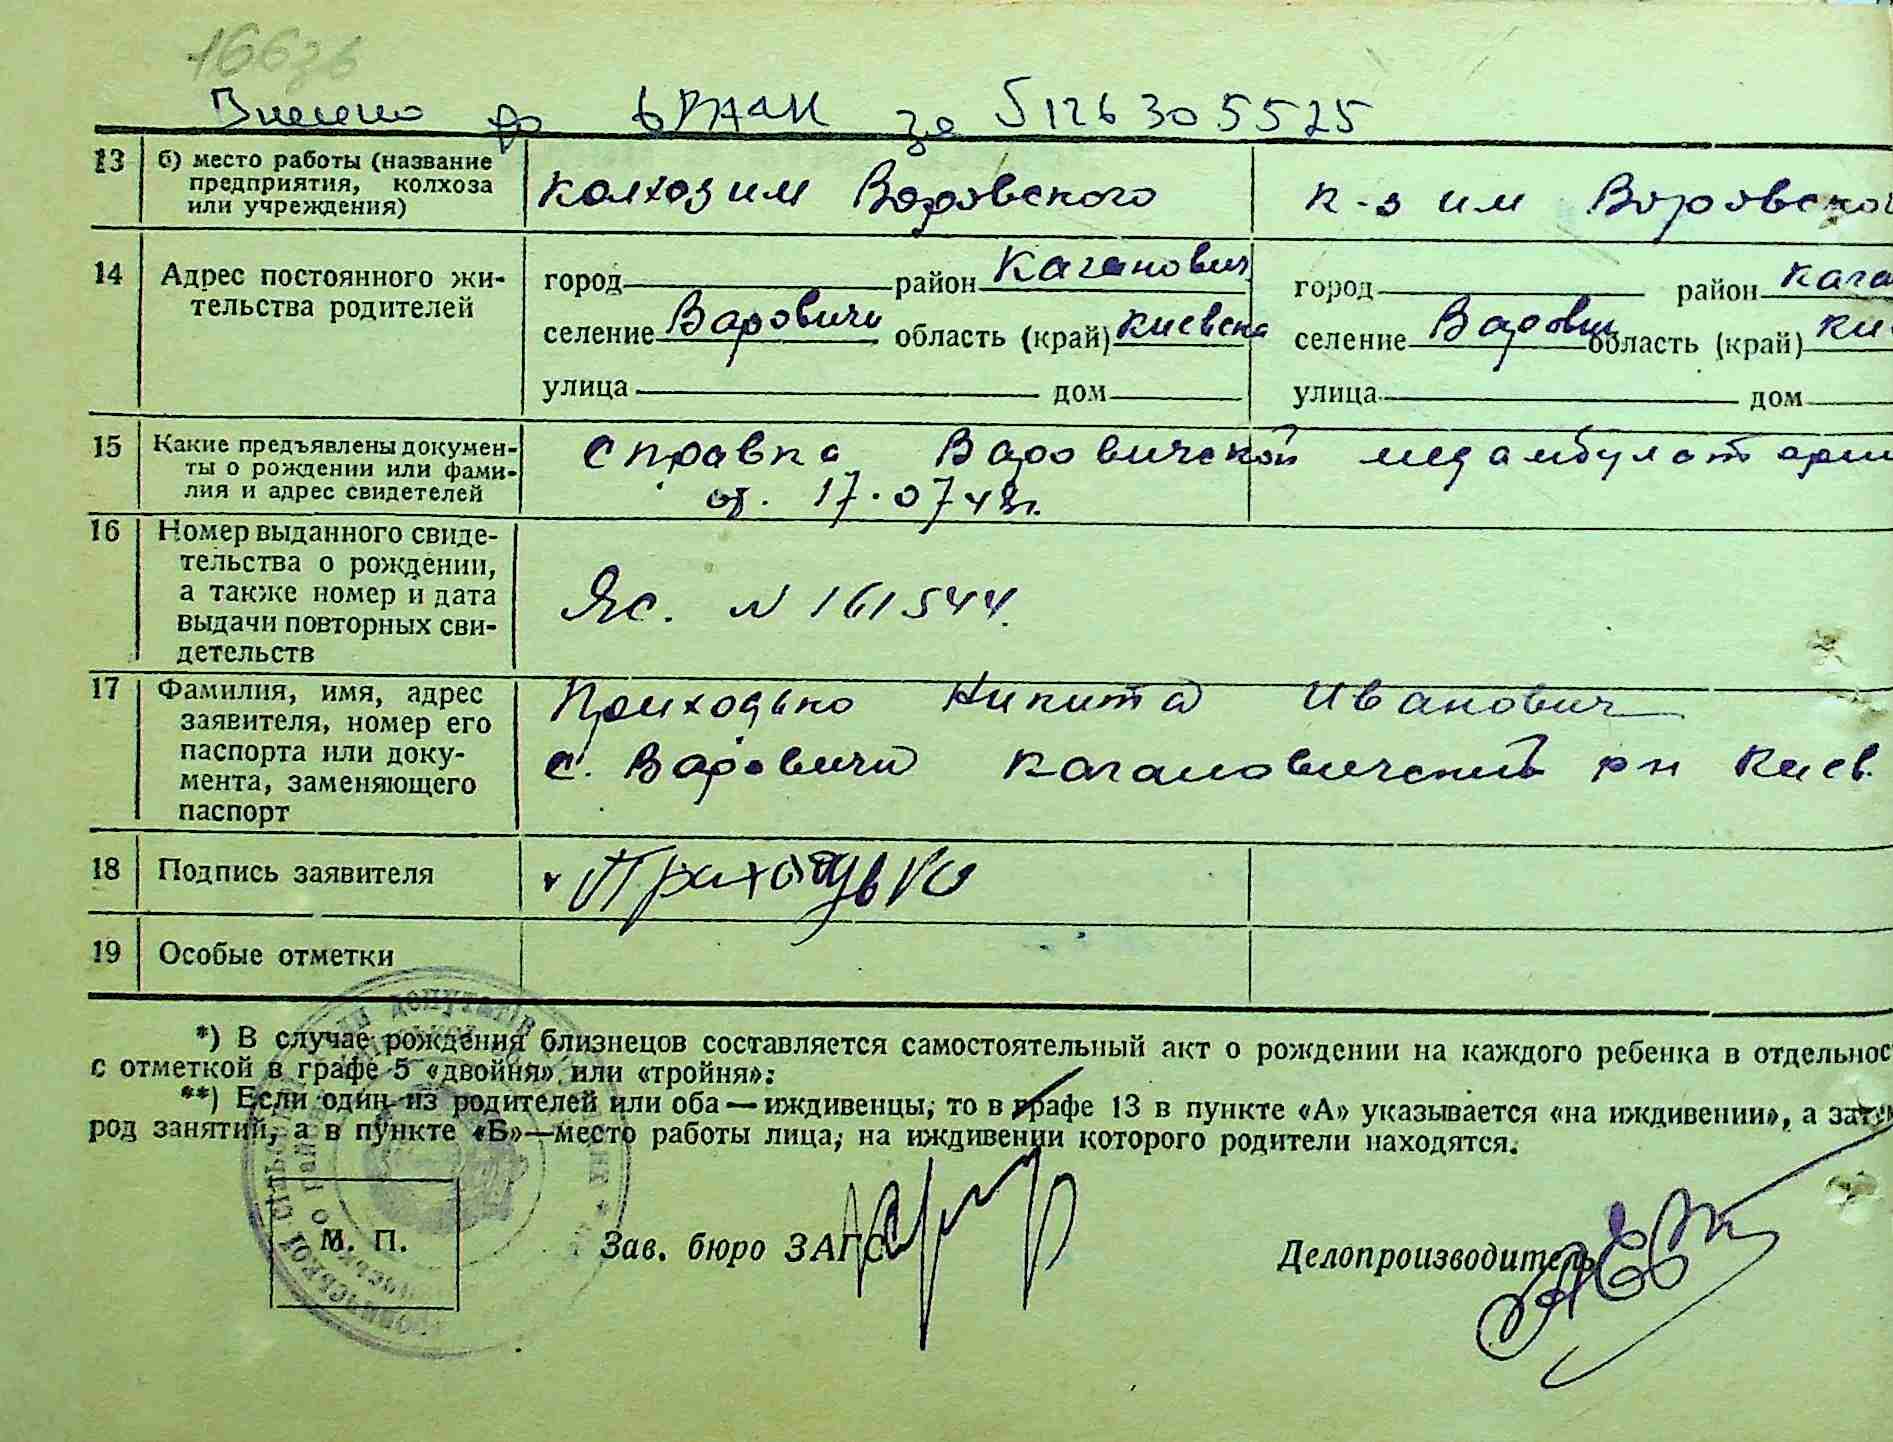 166зв
Внесено до ДРАЦС за 5126305525
13 б) место работы (название предприятия, колхоза или учреждения) колхоз им Воровского к-з им Воровског
14 Адрес постоянного жительства родителей
город район Каганович город район кага
селение Варовичи область (край) киевска селение Варович область (край) ки
улица дом улица дом
15 Какие предъявлены докумен-
ты о рождении или фами-
лия и адрес свидетелей
Справка Варовичской медамбулатории
от. 17.07 48г.
16 Номер выданного свиде-
тельства о рождении,
а также номер и дата
выдачи повторных сви-
детельств
ЯС. N 161544.
17 Фамилия, имя, адрес
заявителя, номер его
паспорта или доку-
мента, заменяющего
паспорт
Приходько Никита Иванович
с. Варовичи Кагановический рн Киев.
18 Подпись заявителя Приходько
19 Особые отметки
*) В случае рождения близнецов составляется самостоятельный акт о рождении на каждого ребенка в отдельнос
с отметкой в графе 5 «двойня» или «тройня»:
**) Если один из родителей или оба — иждивенцы, то в графе 13 в пункте «А» указывается «на иждивении», а зате
род занятий, а в пункте «Б»—место работы лица, на иждивении которого родители находятся.
М. П. Зав. бюро ЗАГС Делопроизводитель